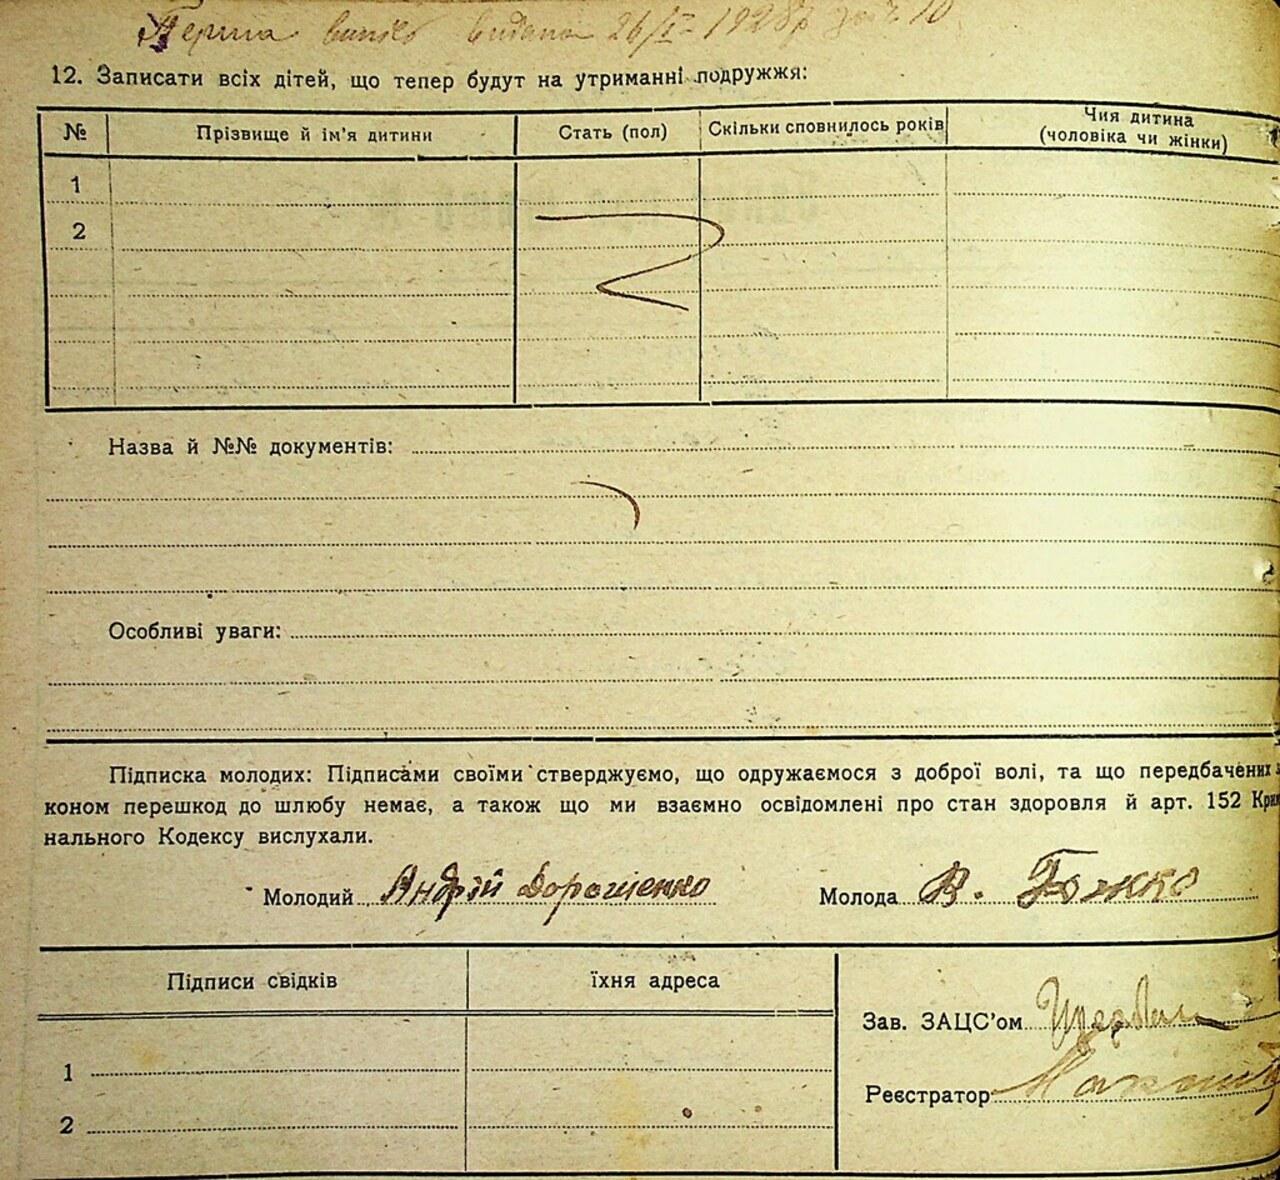 Перша випись видана 26/I 1928 р за № 10
12. Записати всіх дітей, що тепер будут на утриманні подружжя:
№ Прізвище й ім'я дитини Стать (пол) Скільки сповнилось років Чия дитина (чоловіка чи жінки)
1
2
Назва й №№ документів:
Особливі уваги:
Підписка молодих: Підписами своїми стверджуємо, що одружаємося з доброї волі, та що передбачених з
коном перешкод до шлюбу немає, а також що ми взаємно освідомлені про стан здоровля й арт. 152 Крим
нального Кодексу вислухали.
Молодий Андрій Дорошенко Молода В. Божко
Підписи свідків їхня адреса
Зав. ЗАЦС'ом
1
Реєстратор
2